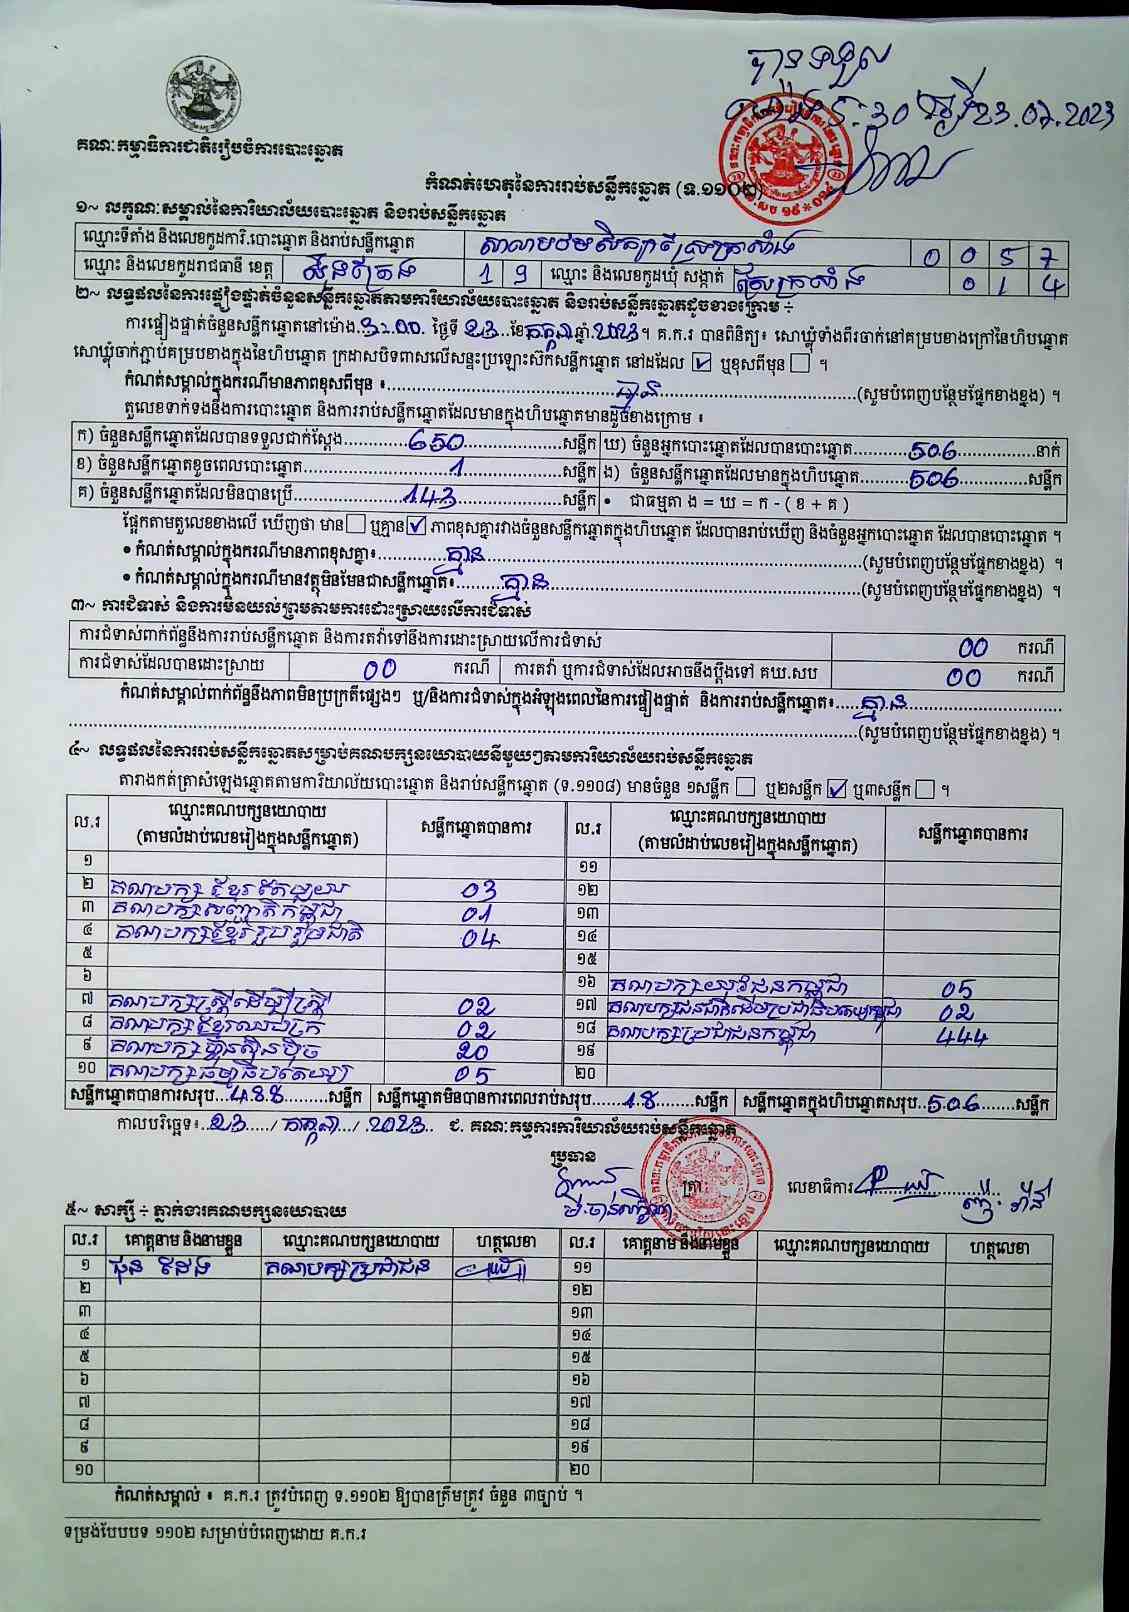 បានទទួល
ម៉ោង 5:30 ថ្ងៃ 23.07.2023
គណៈកម្មាធិការជាតិរៀបចំការបោះឆ្នោត
កំណត់ហេតុនៃការរាប់សន្លឹកឆ្នោត (ទ.១១០២)
១~ លក្ខណៈសម្គាល់នៃការិយាល័យបោះឆ្នោត និងរាប់សន្លឹកឆ្នោត
ឈ្មោះទីតាំង និងលេខកូដការិ.បោះឆ្នោត និងរាប់សន្លឹកឆ្នោត សាលាបឋមសិក្សាស្រែក្រសាំង 0 0 5 7
ឈ្មោះ និងលេខកូដរាជធានី ខេត្ត ស្ទឹងត្រែង 1 9 ឈ្មោះ និងលេខកូដឃុំ សង្កាត់ ស្រែក្រសាំង 0 1 4
២~ លទ្ធផលនៃការផ្ទៀងផ្ទាត់ចំនួនសន្លឹកឆ្នោតតាមការិយាល័យបោះឆ្នោត និងរាប់សន្លឹកឆ្នោតដូចខាងក្រោម ÷
ការផ្ទៀងផ្ទាត់ចំនួនសន្លឹកឆ្នោតនៅម៉ោង 3:00 ថ្ងៃទី 23 ខែ កក្កដា ឆ្នាំ 2023 ។ គ.ក.រ បានពិនិត្យ៖ សោឃ្លុំទាំងពីរចាក់នៅគម្របខាងក្រៅនៃហិបឆ្នោត
សោឃ្លុំចាក់ភ្ជាប់គម្របខាងក្នុងនៃហិបឆ្នោត ក្រដាសបិទពាសលើសន្ទះប្រឡោះស៊កសន្លឹកឆ្នោត នៅដដែល ☑ ឬខុសពីមុន ☐ ។
កំណត់សម្គាល់ក្នុងករណីមានភាពខុសពីមុន ៖ គ្មាន (សូមបំពេញបន្ថែមផ្នែកខាងខ្នង) ។
តួលេខទាក់ទងនឹងការបោះឆ្នោត និងការរាប់សន្លឹកឆ្នោតដែលមានក្នុងហិបឆ្នោតមានដូចខាងក្រោម ៖
ក) ចំនួនសន្លឹកឆ្នោតដែលបានទទួលជាក់ស្តែង 650 សន្លឹក ឃ) ចំនួនអ្នកបោះឆ្នោតដែលបានបោះឆ្នោត 506 នាក់
ខ) ចំនួនសន្លឹកឆ្នោតខូចពេលបោះឆ្នោត 1 សន្លឹក ង) ចំនួនសន្លឹកឆ្នោតដែលមានក្នុងហិបឆ្នោត 506 សន្លឹក
គ) ចំនួនសន្លឹកឆ្នោតដែលមិនបានប្រើ 143 សន្លឹក • ជាធម្មតា ង = ឃ = ក - ( ខ + គ )
ផ្អែកតាមតួលេខខាងលើ ឃើញថា មាន ☐ ឬគ្មាន ☑ ភាពខុសគ្នារវាងចំនួនសន្លឹកឆ្នោតក្នុងហិបឆ្នោត ដែលបានរាប់ឃើញ និងចំនួនអ្នកបោះឆ្នោត ដែលបានបោះឆ្នោត ។
• កំណត់សម្គាល់ក្នុងករណីមានភាពខុសគ្នា៖ គ្មាន (សូមបំពេញបន្ថែមផ្នែកខាងខ្នង) ។
• កំណត់សម្គាល់ក្នុងករណីមានវត្ថុមិនមែនជាសន្លឹកឆ្នោត៖ គ្មាន (សូមបំពេញបន្ថែមផ្នែកខាងខ្នង) ។
៣~ ការជំទាស់ និងការមិនយល់ព្រមតាមការដោះស្រាយលើការជំទាស់
ការជំទាស់ពាក់ព័ន្ធនឹងការរាប់សន្លឹកឆ្នោត និងការតវ៉ាទៅនឹងការដោះស្រាយលើការជំទាស់ 00 ករណី
ការជំទាស់ដែលបានដោះស្រាយ 00 ករណី ការតវ៉ា ឬការជំទាស់ដែលអាចនឹងប្តឹងទៅ គឃ.សប 00 ករណី
កំណត់សម្គាល់ពាក់ព័ន្ធនឹងភាពមិនប្រក្រតីផ្សេងៗ ឬ/និងការជំទាស់ក្នុងអំឡុងពេលនៃការផ្ទៀងផ្ទាត់ និងការរាប់សន្លឹកឆ្នោត៖ គ្មាន
(សូមបំពេញបន្ថែមផ្នែកខាងខ្នង) ។
៤~ លទ្ធផលនៃការរាប់សន្លឹកឆ្នោតសម្រាប់គណបក្សនយោបាយនីមួយៗតាមការិយាល័យរាប់សន្លឹកឆ្នោត
តារាងកត់ត្រាសំឡេងឆ្នោតតាមការិយាល័យបោះឆ្នោត និងរាប់សន្លឹកឆ្នោត (ទ.១១០៨) មានចំនួន ១សន្លឹក ☐ ឬ២សន្លឹក ☑ ឬ៣សន្លឹក ☐ ។
ល.រ ឈ្មោះគណបក្សនយោបាយ (តាមលំដាប់លេខរៀងក្នុងសន្លឹកឆ្នោត) សន្លឹកឆ្នោតបានការ ល.រ ឈ្មោះគណបក្សនយោបាយ (តាមលំដាប់លេខរៀងក្នុងសន្លឹកឆ្នោត) សន្លឹកឆ្នោតបានការ
១ ១១
២ គណបក្ស ខ្មែរតែមួយ 03 ១២
៣ គណបក្សសញ្ជាតិកម្ពុជា 01 ១៣
៤ គណបក្សខ្មែររួបរួមជាតិ 04 ១៤
៥ ១៥
៦ ១៦ គណបក្សយុវជនកម្ពុជា 05
៧ គណបក្សស្ត្រីដើម្បីស្ត្រី 02 ១៧ គណបក្សជនជាតិដើមប្រជាធិបតេយ្យកម្ពុជា 02
៨ គណបក្សខ្មែរឈប់ក្រ 02 ១៨ គណបក្សប្រជាជនកម្ពុជា 444
៩ គណបក្សហ៊្វុនស៊ិនប៉ិច 20 ១៩
១០ គណបក្សធម្មាធិបតេយ្យ 05 ២០
សន្លឹកឆ្នោតបានការសរុប 488 សន្លឹក សន្លឹកឆ្នោតមិនបានការពេលរាប់សរុប 18 សន្លឹក សន្លឹកឆ្នោតក្នុងហិបឆ្នោតសរុប 506 សន្លឹក
កាលបរិច្ឆេទ៖ 23 / កក្កដា / 2023 ជ. គណៈកម្មការការិយាល័យរាប់សន្លឹកឆ្នោត
ប្រធាន
ត្រា លេខាធិការ
៥~ សាក្សី ÷ ភ្នាក់ងារគណបក្សនយោបាយ
ល.រ គោត្តនាម និងនាមខ្លួន ឈ្មោះគណបក្សនយោបាយ ហត្ថលេខា ល.រ គោត្តនាម និងនាមខ្លួន ឈ្មោះគណបក្សនយោបាយ ហត្ថលេខា
១ ផុន ដែង គណបក្សប្រជាជន ១១
២ ១២
៣ ១៣
៤ ១៤
៥ ១៥
៦ ១៦
៧ ១៧
៨ ១៨
៩ ១៩
១០ ២០
កំណត់សម្គាល់ ៖ គ.ក.រ ត្រូវបំពេញ ទ.១១០២ ឱ្យបានត្រឹមត្រូវ ចំនួន ៣ច្បាប់ ។
ទម្រង់បែបបទ ១១០២ សម្រាប់បំពេញដោយ គ.ក.រ